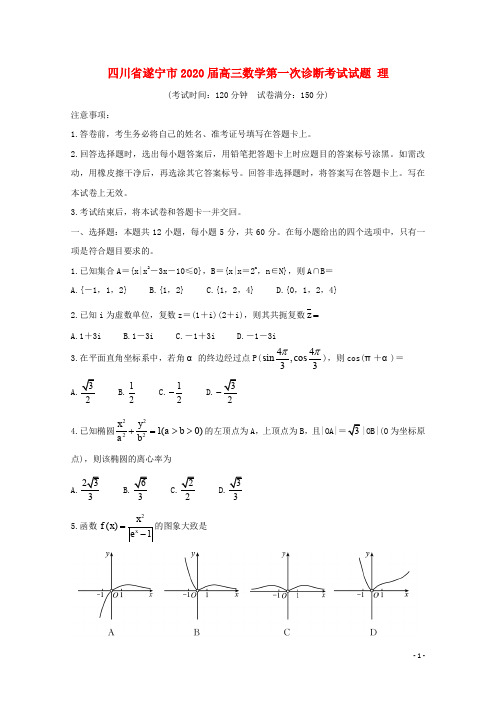 四川省遂宁市2020届高三数学第一次诊断考试试题 理
(考试时间:120分钟 试卷满分:150分)
注意事项:
1.答卷前,考生务必将自己的姓名、准考证号填写在答题卡上。
2.回答选择题时,选出每小题答案后,用铅笔把答题卡上时应题目的答案标号涂黑。如需改
动,用橡皮擦干净后,再选涂其它答案标号。回答非选择题时,将答案写在答题卡上。写在
本试卷上无效。
3.考试结束后,将本试卷和答题卡一并交回。
一、选择题:本题共12小题,每小题5分,共60分。在每小题给出的四个选项中,只有一
项是符合题目要求的。
1.已知集合A={x|x²-3x-10≤0},B={x|x=2ⁿ,n∈N},则A∩B=
A.{-1,1,2} B.{1,2} C.{1,2,4} D.{0,1,2,4}
2.已知i为虚数单位,复数z=(1+i)(2+i),则其共扼复数z̄=
A.1+3i B.1-3i C.-1+3i D.-1-3i
3.在平面直角坐标系中,若角α的终边经过点P(sin 4π/3, cos 4π/3),则cos(π+α)=
A.√3/2 B.1/2 C.-1/2 D.-√3/2
4.已知椭圆x²/a²+y²/b²=1(a>b>0)的左顶点为A,上顶点为B,且|OA|=√3|OB|(O为坐标原
点),则该椭圆的离心率为
A.2√3/3 B.√6/3 C.√2/2 D.√3/3
5.函数f(x)=x²/|eˣ-1|的图象大致是
y y y y
-1 O 1 x -1 O 1 x -1 O 1 x -1 O 1 x
A B C D
- 1 -